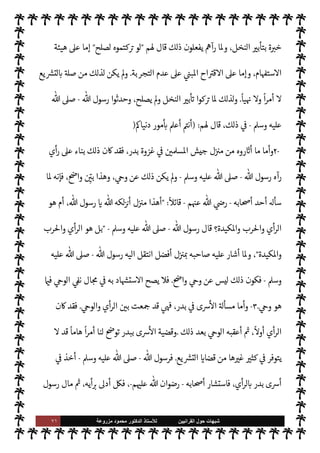 خبرة بتأبير النخل، ولما رآهم يفعلون ذلك قال لهم "لو تركتموه لصلح" إما على هيئة
الاستفهام، وإما على الاقتراح المبني على عدم التجربة. ولم يكن لذلك من صلة بالتشريع
لا أمراً ولا نهياً. ولذلك لما تركوا تأبير النخل ولم يصلح، وحدثوا رسول الله - صلى الله
عليه وسلم - في ذلك، قال لهم: (أنتم أعلم بأمور دنياكم(
٢-وأما ما أثاروه من منزل جيش المسلمين في غزوة بدر، فقد كان ذلك بناء على رأي
رآه رسول الله - صلى الله عليه وسلم - ولم يكن ذلك عن وحي، وهذا بيّن واضح، فإنه لما
سأله أحد أصحابه - رضي الله عنهم - قائلاً: "أهذا منزل أنزلكه الله يا رسول الله، أم هو
الرأي والحرب والمكيدة؟ قال رسول الله - صلى الله عليه وسلم - "بل هو الرأي والحرب
والمكيدة"، ولما أشار عليه صاحبه بمنزل أفضل انتقل اليه رسول الله - صلى الله عليه
وسلم - فكون ذلك ليس عن وحي واضح. فلا يصح الاستشهاد به في مجال نفي الوحي فيما
هو وحي.٣- وأما مسألة الأسرى في بدر، فهي قد جمعت بين الرأي والوحي. فقد كان
الرأي أولاً، ثم أعقبه الوحي بعد ذلك .وقضية الأسرى ببدر توضح لنا أمراً هاماً قد لا
يتوفر في كثير غيرها من قضايا التشريع. فرسول الله - صلى الله عليه وسلم - أخذ في
أسرى بدر بالرأي، فاستشار أصحابه - رضوان الله عليهم.-، فكل أدلى برأيه، ثم مال رسول
شبهات حول القرآنيين للأستاذ الدكتور محمود مزروعة ٧١